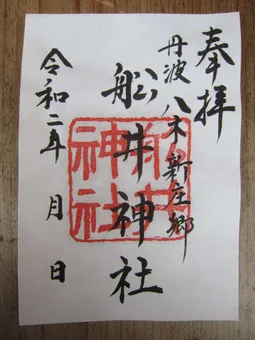 奉拝
丹波八木新庄郷
船井神社
船井神社
令和二年 月 日